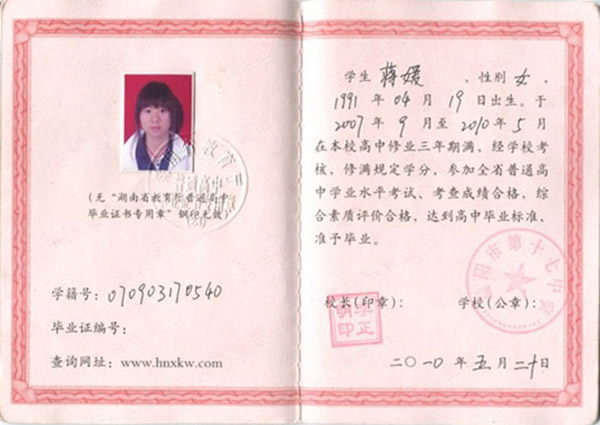 (无“湖南省教育厅普通高中
毕业证书专用章”钢印无效)
学籍号：070903170540
毕业证编号：
查询网址：www.hnxkw.com
学生 蒋媛 ，性别 女 ，
1991 年 04 月 19 日出生。于
2007 年 9 月至 2010 年 5 月
在本校高中修业三年期满，经学校考
核，修满规定学分，参加全省普通高
中学业水平考试、考查成绩合格，综
合素质评价合格，达到高中毕业标准，
准予毕业。
校长(印章)： 学校(公章)：
李正明印
阳市第十七中学
二〇一〇年五月二十日